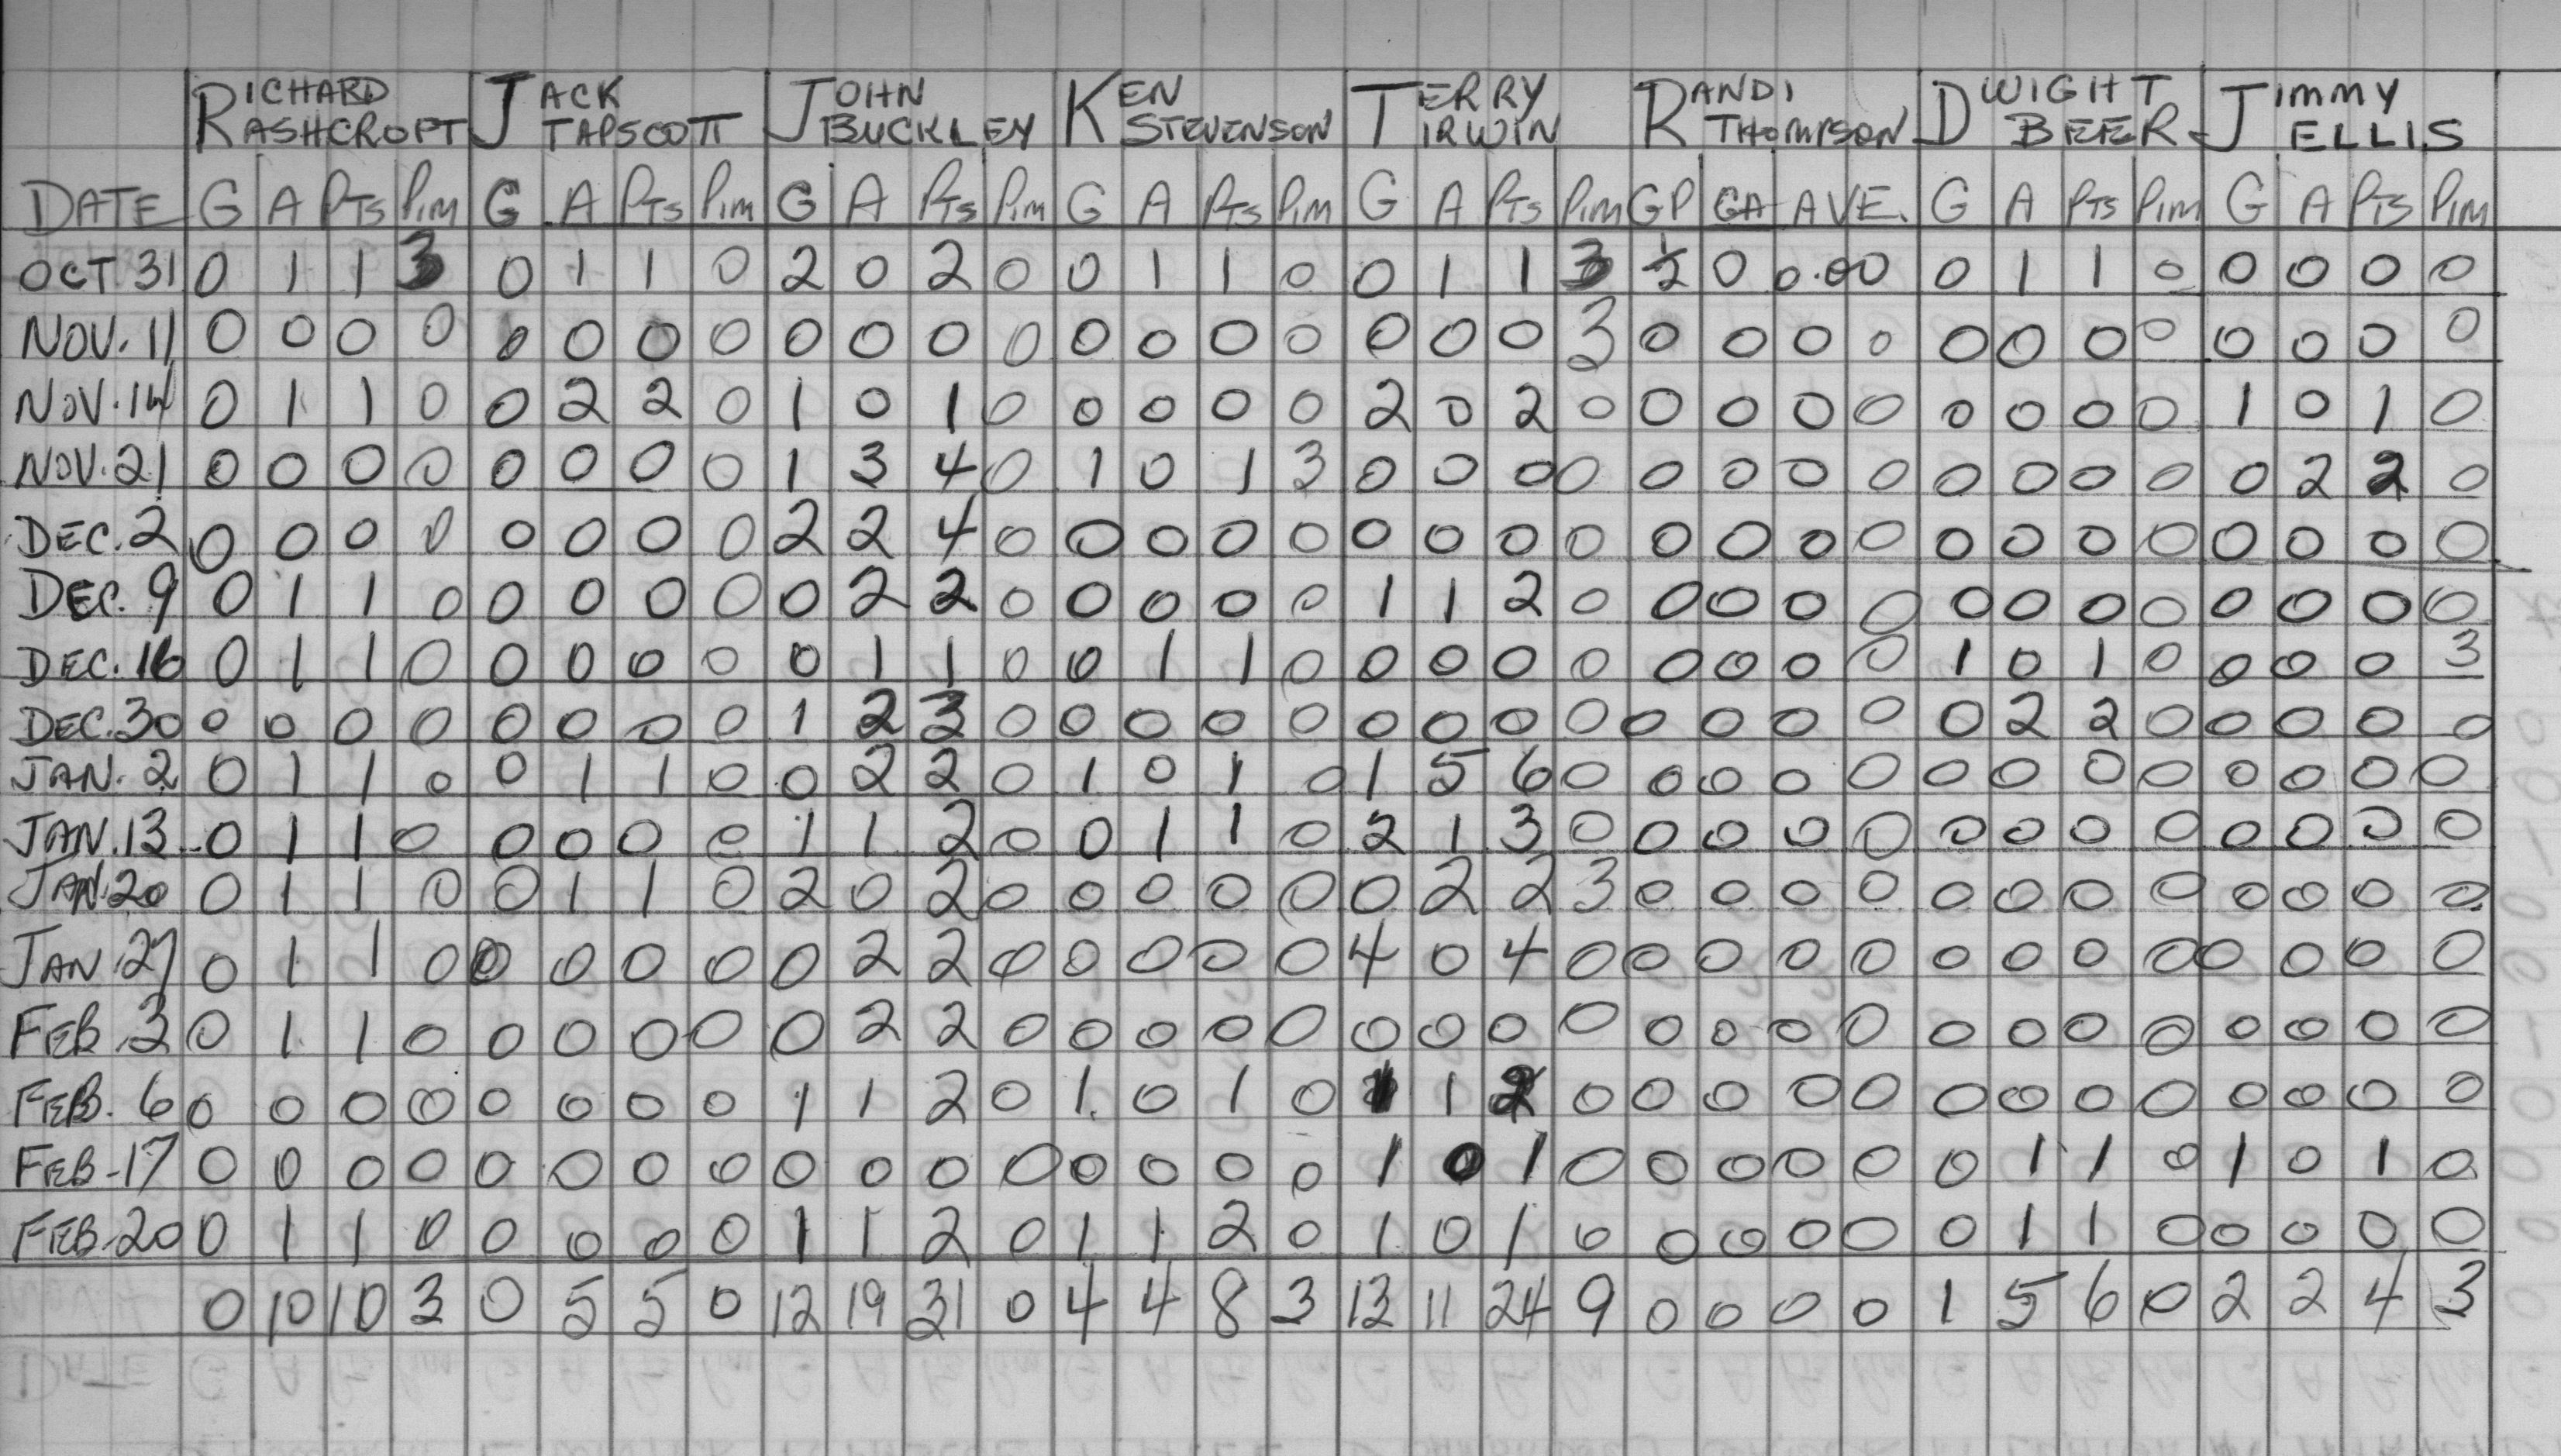 RICHARD JACK JOHN KEN TERRY RANDI DWIGHT JIMMY
RASHCROFT TAPSCOTT BUCKLEY STEVENSON IRWIN THOMPSON BEER ELLIS
DATE G A PTS PIM G A PTS PIM G A PTS PIM G A PTS PIM G A PTS PIM GP GA AVE. G A PTS PIM G A PTS PIM
OCT 31 0 1 1 3 0 1 1 0 2 0 2 0 0 1 1 0 0 1 1 3 1/2 0 0.00 0 1 1 0 0 0 0 0
NOV. 11 0 0 0 0 0 0 0 0 0 0 0 0 0 0 0 0 0 0 0 3 0 0 0 0 0 0 0 0 0 0 0 0
NOV. 14 0 1 1 0 0 2 2 0 1 0 1 0 0 0 0 0 2 0 2 0 0 0 0 0 0 0 0 0 1 0 1 0
NOV. 21 0 0 0 0 0 0 0 0 1 3 4 0 1 0 1 3 0 0 0 0 0 0 0 0 0 0 0 0 0 2 2 0
DEC. 2 0 0 0 0 0 0 0 0 2 2 4 0 0 0 0 0 0 0 0 0 0 0 0 0 0 0 0 0 0 0 0 0
DEC. 9 0 1 1 0 0 0 0 0 0 2 2 0 0 0 0 0 1 1 2 0 0 0 0 0 0 0 0 0 0 0 0 0
DEC. 16 0 1 1 0 0 0 0 0 0 1 1 0 0 1 1 0 0 0 0 0 0 0 0 0 1 0 1 0 0 0 0 3
DEC. 30 0 0 0 0 0 0 0 0 1 2 3 0 0 0 0 0 0 0 0 0 0 0 0 0 0 2 2 0 0 0 0 0
JAN. 2 0 1 1 0 0 1 1 0 0 2 2 0 1 0 1 0 1 5 6 0 0 0 0 0 0 0 0 0 0 0 0 0
JAN. 13 0 1 1 0 0 0 0 0 1 1 2 0 0 1 1 0 2 1 3 0 0 0 0 0 0 0 0 0 0 0 0 0
JAN. 20 0 1 1 0 0 1 1 0 2 0 2 0 0 0 0 0 0 2 2 3 0 0 0 0 0 0 0 0 0 0 0 0
JAN. 27 0 1 1 0 0 0 0 0 0 2 2 0 0 0 0 0 4 0 4 0 0 0 0 0 0 0 0 0 0 0 0 0
FEB. 3 0 1 1 0 0 0 0 0 0 2 2 0 0 0 0 0 0 0 0 0 0 0 0 0 0 0 0 0 0 0 0 0
FEB. 6 0 0 0 0 0 0 0 0 1 1 2 0 1 0 1 0 1 1 2 0 0 0 0 0 0 0 0 0 0 0 0 0
FEB-17 0 0 0 0 0 0 0 0 0 0 0 0 0 0 0 0 1 0 1 0 0 0 0 0 0 1 1 0 1 0 1 0
FEB-20 0 1 1 0 0 0 0 0 1 1 2 0 1 1 2 0 1 0 1 0 0 0 0 0 0 1 1 0 0 0 0 0
0 10 10 3 0 5 5 0 12 19 31 0 4 4 8 3 13 11 24 9 0 0 0 0 1 5 6 0 2 2 4 3